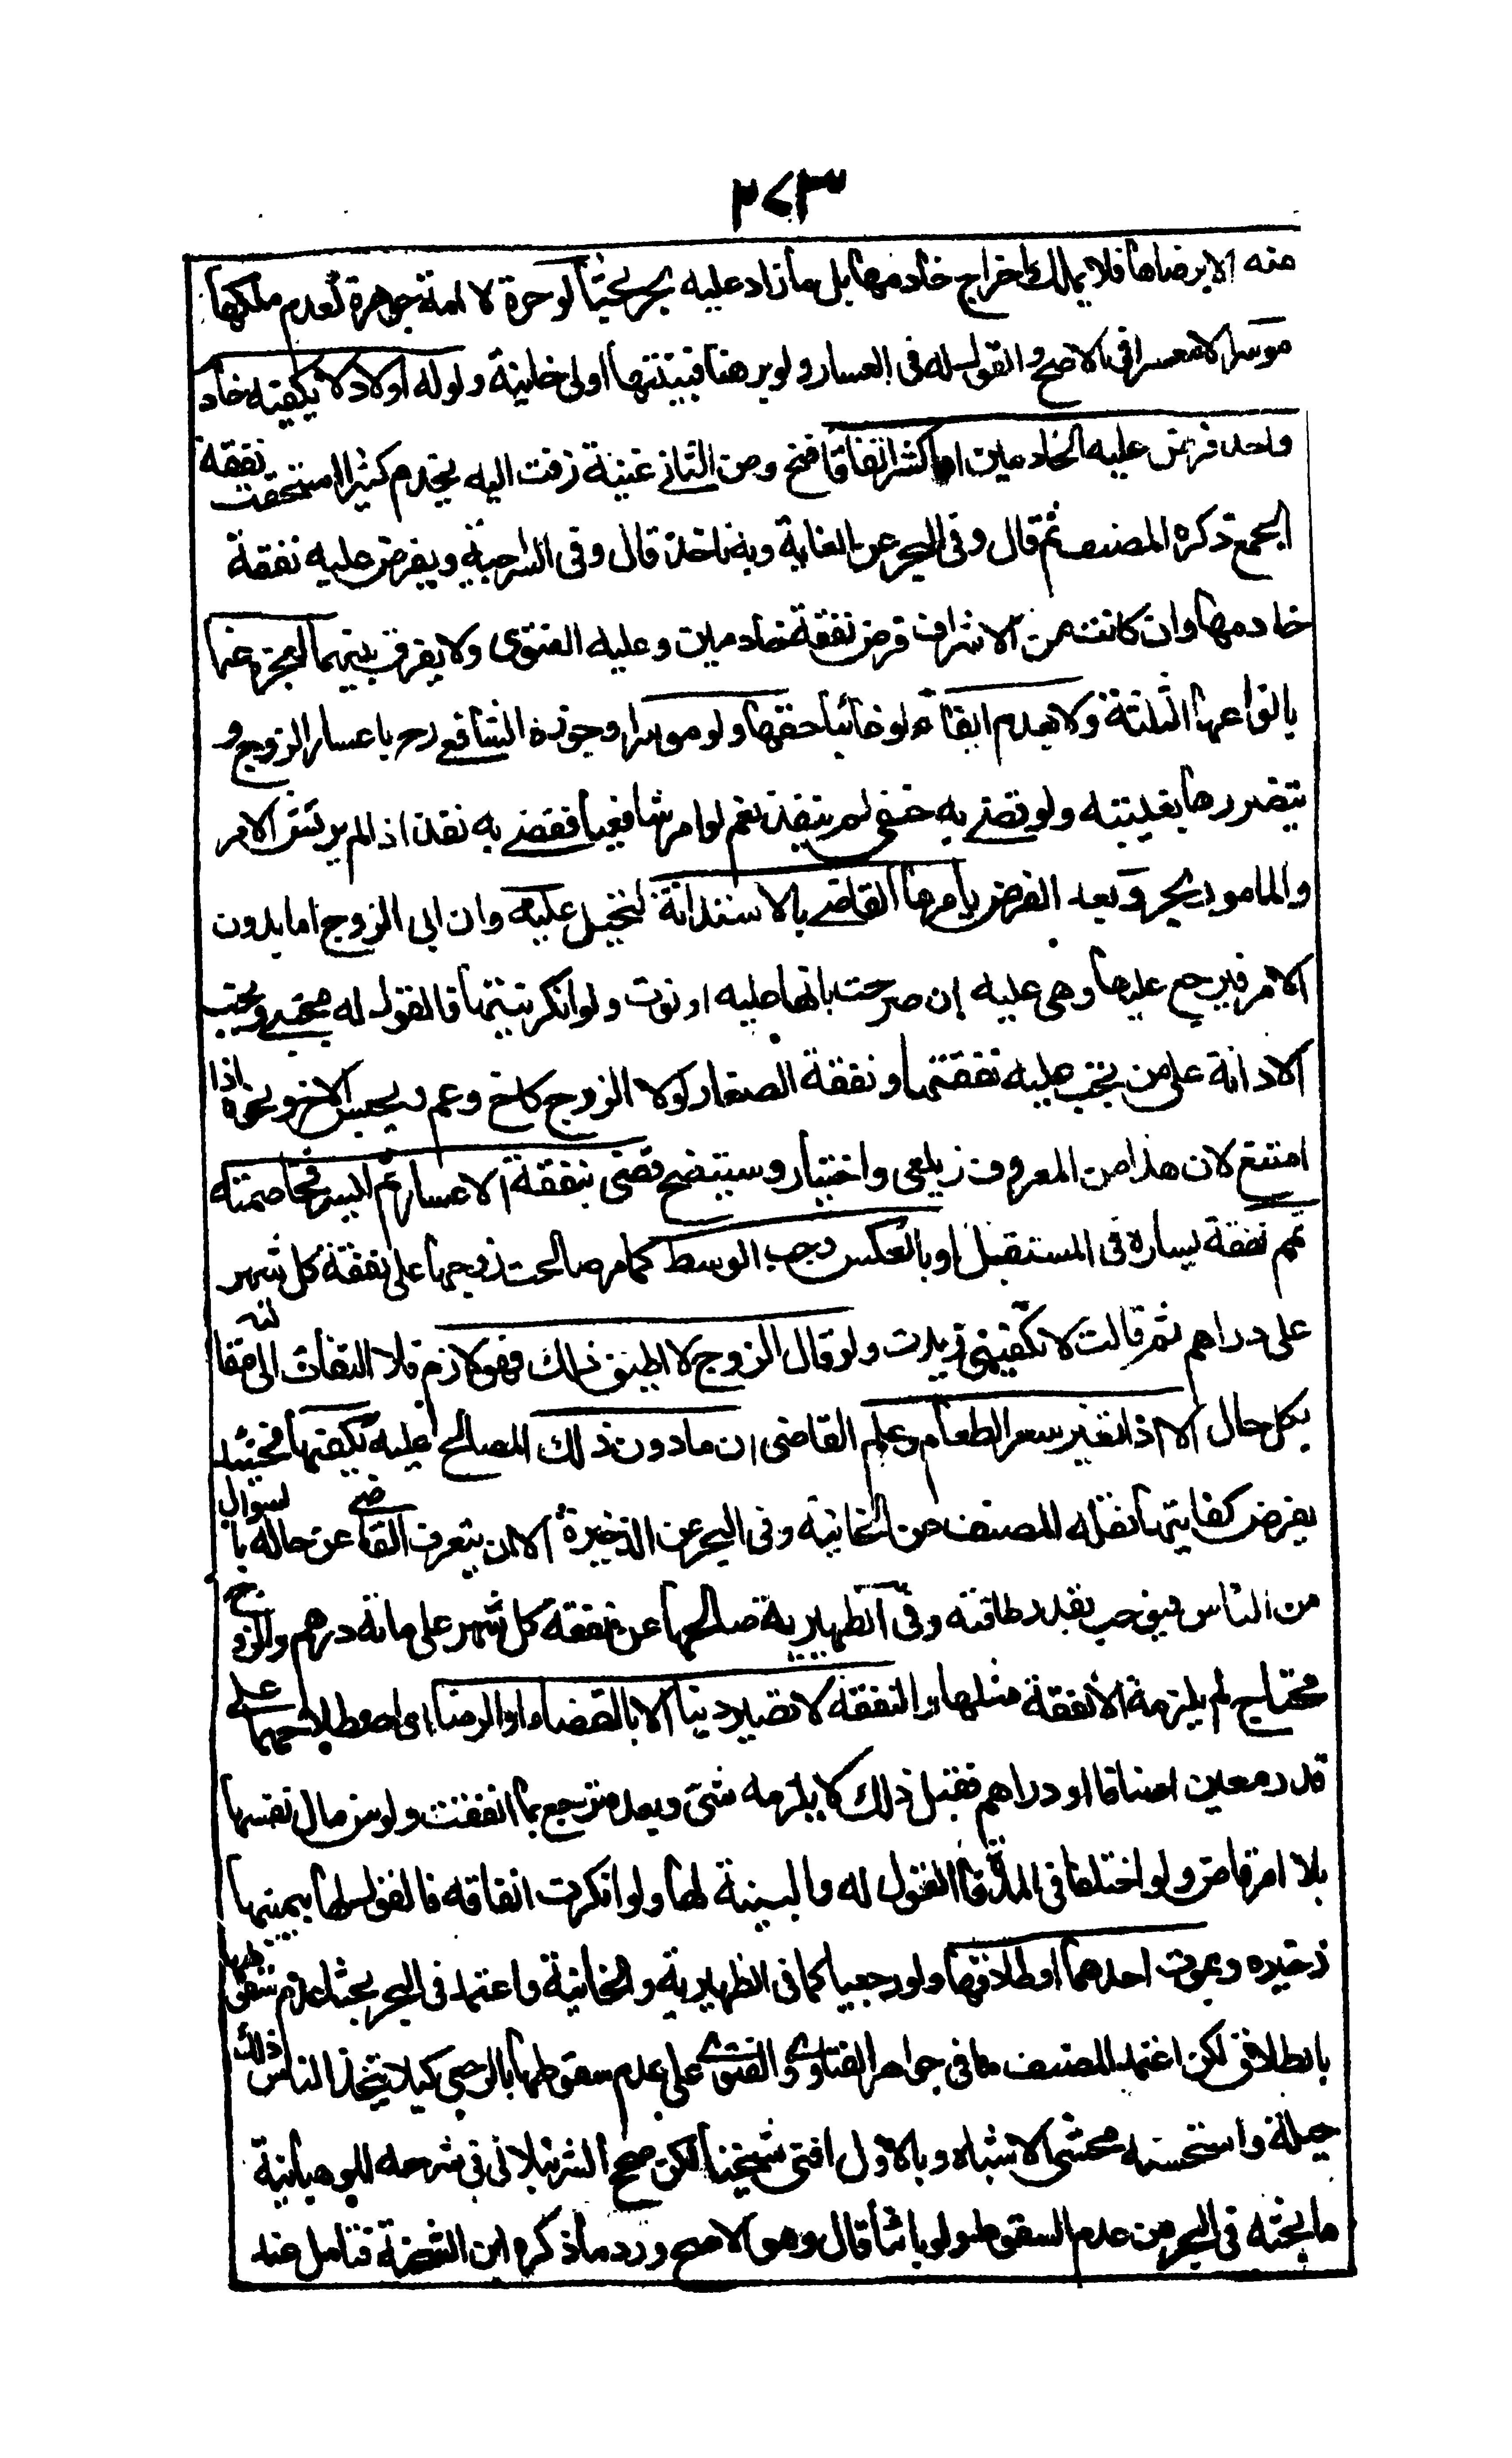 ٢٧٣
منه الا برضاها فلا يملك اخراج خادمها بل ما زاد عليه بحر بحثا لو حرة لا امة جوهرة لعدم ملكها
موسرا لا معسرا في الاصح والقول له في العسار ولو برهنا فبينتها اولى خانية ولو له اولاد لا يكفيه خاد
واحد فرض عليه لخادمين او اكثر اتفاقا فتح وعن الثاني غنية زفت اليه بخدم كثير استحقت نفقة
الجميع ذكره المصنف ثم قال وفي البحر عن الغاية وبه ناخذ قال وفي السراجية ويفرض عليه نفقة
خادمها وان كانت من الاشراف فرض نفقة خادمين وعليه الفتوى ولا يفرق بينهما لعجزه عنها
بانواعها الثلثة ولا بعدم ايفائه لو غائبا حقها ولو موسرا وجوزه الشافعي رح باعسار الزوج و
بتضررها بغيبته ولو قضى به حنفي لم ينفذ نعم لو امر شافعيا فقضى به نفذ اذا لم يرتش الامر
والمامور بحر وبعد الفرض يامرها القاضي بالاستدانة لتحيل عليه وان ابى الزوج اما بدون
الامر فيرجع عليها وهي عليه إن صرحت بانها عليه او نوت ولو انكر نيتها فالقول له مجتبى ويجب
الادانة على من يجب عليه نفقتها ونفقة الصغار لولا الزوج كاخ وعم ويحبس الاخ ونحوه اذا
امتنع لان هذا من المعروف زيلعي واختيار وسيتضح قضى بنفقة الاعسار ثم ايسر فخاصمته
تمم نفقة يساره في المستقبل او بالعكس وجب الوسط كما مر صالحت زوجها على نفقة كل شهر
على دراهم ثم قالت لا تكفيني زيدت ولو قال الزوج لا اطيق ذلك فهو لازم فلا التفات الى مقالته
بكل حال الا اذا تغير سعر الطعام وعلم القاضي ان ما دون ذلك المصالح عليه يكفيها فحينئذ
يفرض كفايتها نقله المصنف عن الخانية وفي البحر عن الذخيرة الا ان يتعرف القاضي عن حاله بالسوال
من الناس فيوجب بقدر طاقته وفي الظهيرية صالحها عن نفقة كل شهر على مائة درهم والزوج
محتاج لم يلزمه الا نفقة مثلها والنفقة لا تصير دينا الا بالقضاء او الرضا اي اصطلاحهما على
قدر معين اصنافا او دراهم فقبل ذلك لا يلزمه شئ وبعده ترجع بما انفقت ولو من مال نفسها
بلا امر قاض ولو اختلفا في المدة فالقول له والبينة لها ولو انكرت انفاقه فالقول لها بيمينها
ذخيره وبموت احدهما او طلاقها ولو رجعيا كما في الظهيرية والخانية واعتمد في البحر بحثا عدم سقوطها
بالطلاق لكن اعتمد المصنف ما في جواهر الفتاوى والفتوى على عدم سقوطها بالرجعي كيلا يتخذ الناس ذلك
حيلة واستحسنه محشى الاشباه وبالاول افتى شيخنا لكن صحح الشرنبلالي في شرحه للوهبانية
ما بحثه في البحر من عدم السقوط ولو بائنا قال وهو الاصح ورد ما ذكره ابن الشحنة فتامل عند